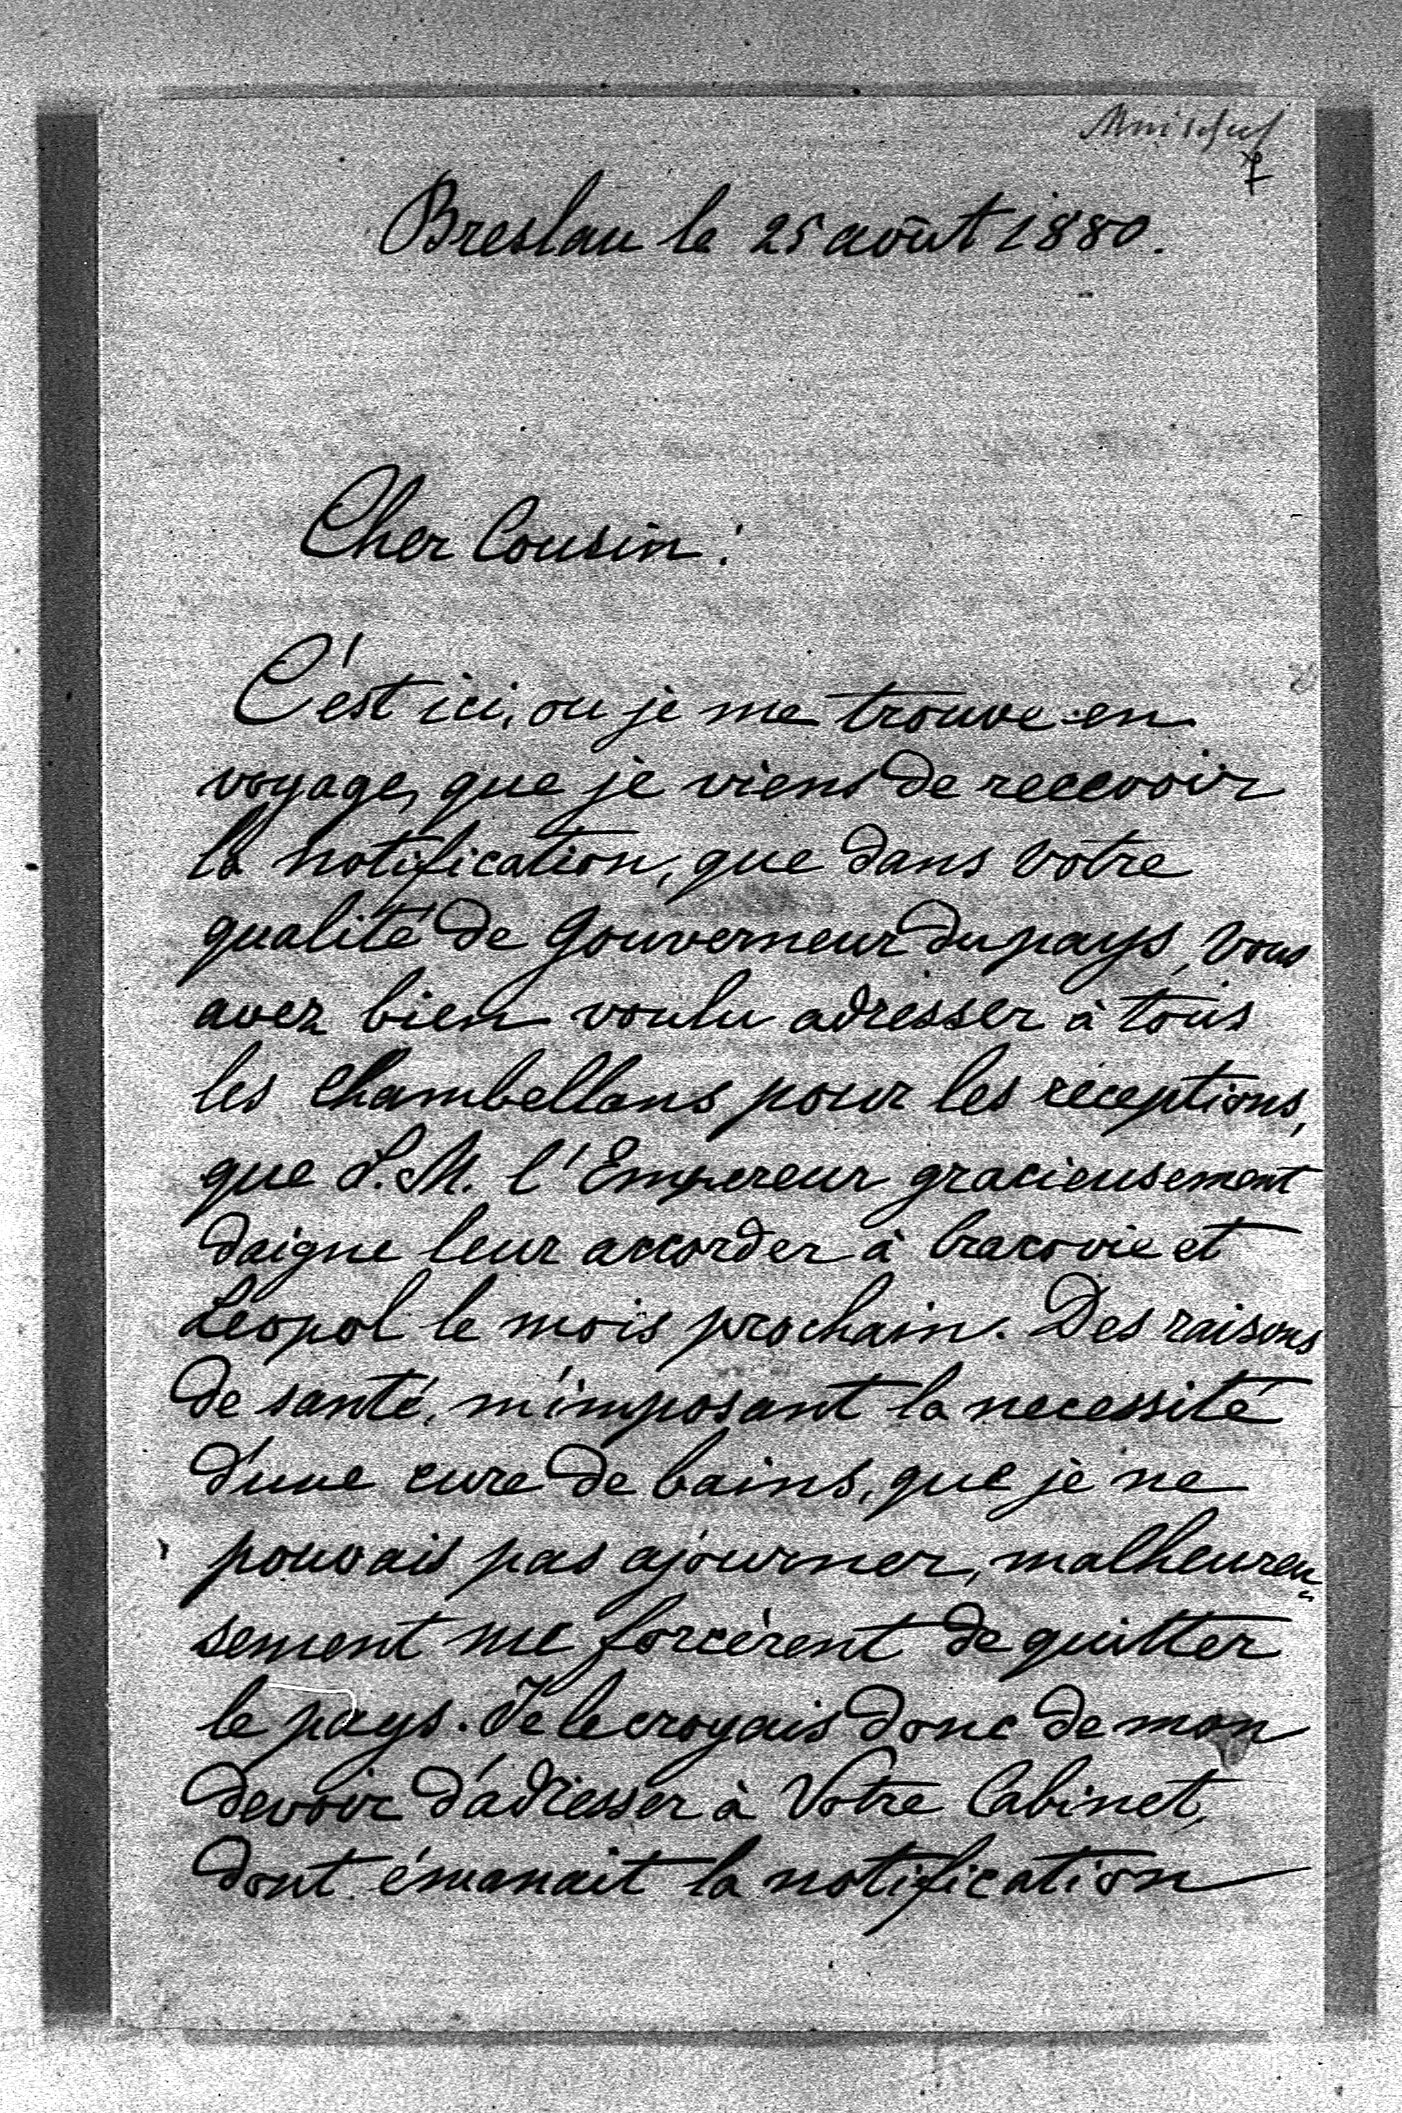 Breslau le 25 août 1880.
Cher Cousin!
C'est ici, ou je me trouve en
voyage, que je viens de recevoir
la notification, que dans votre
qualité de Gouverneur du pays, vous
avez bien voulu adresser à tous
les Chambellans pour les réceptions,
que S. M. l'Empereur gracieusement
daigne leur accorder à Cracovie et
Léopol le mois prochain. Des raisons
de santé, m'imposant la necessité
d'une cure de bains, que je ne
pouvais pas ajourner, malheureu=
sement me forcèrent de quitter
le pays. Je le croyais donc de mon
devoir d'adresser à Votre Cabinet,
dont émanait la notification